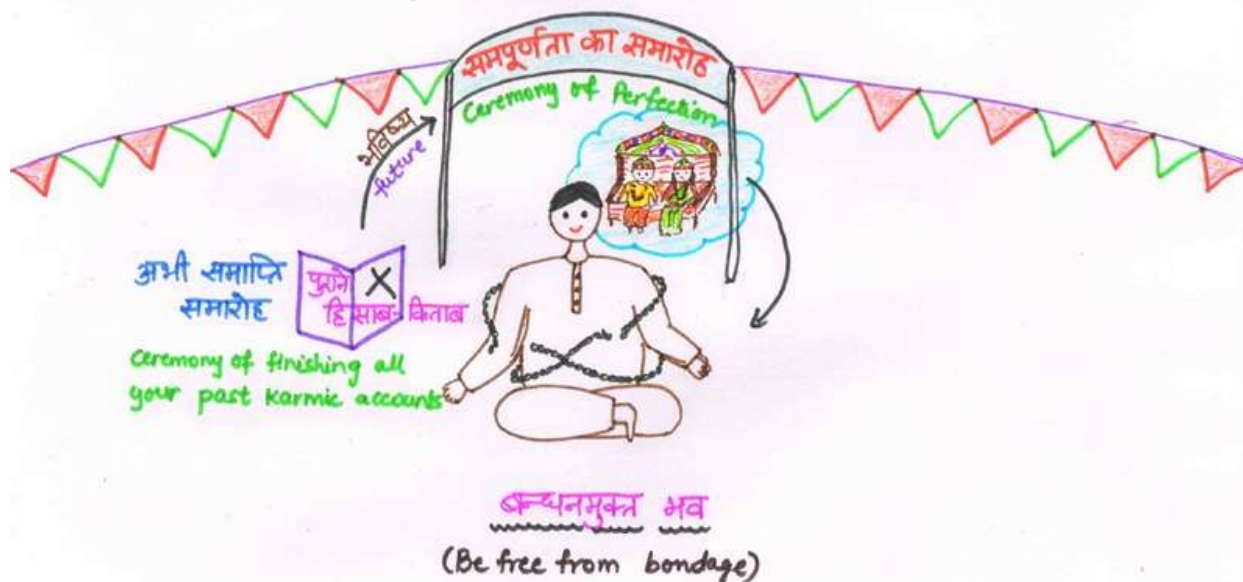 समपूर्णता का समारोह
Ceremony of Perfection
भविष्य
future
अभी समाप्ति
समारोह
पुराने
हिसाब-किताब
Ceremony of finishing all
your past karmic accounts
बन्धनमुक्त भव
(Be free from bondage)